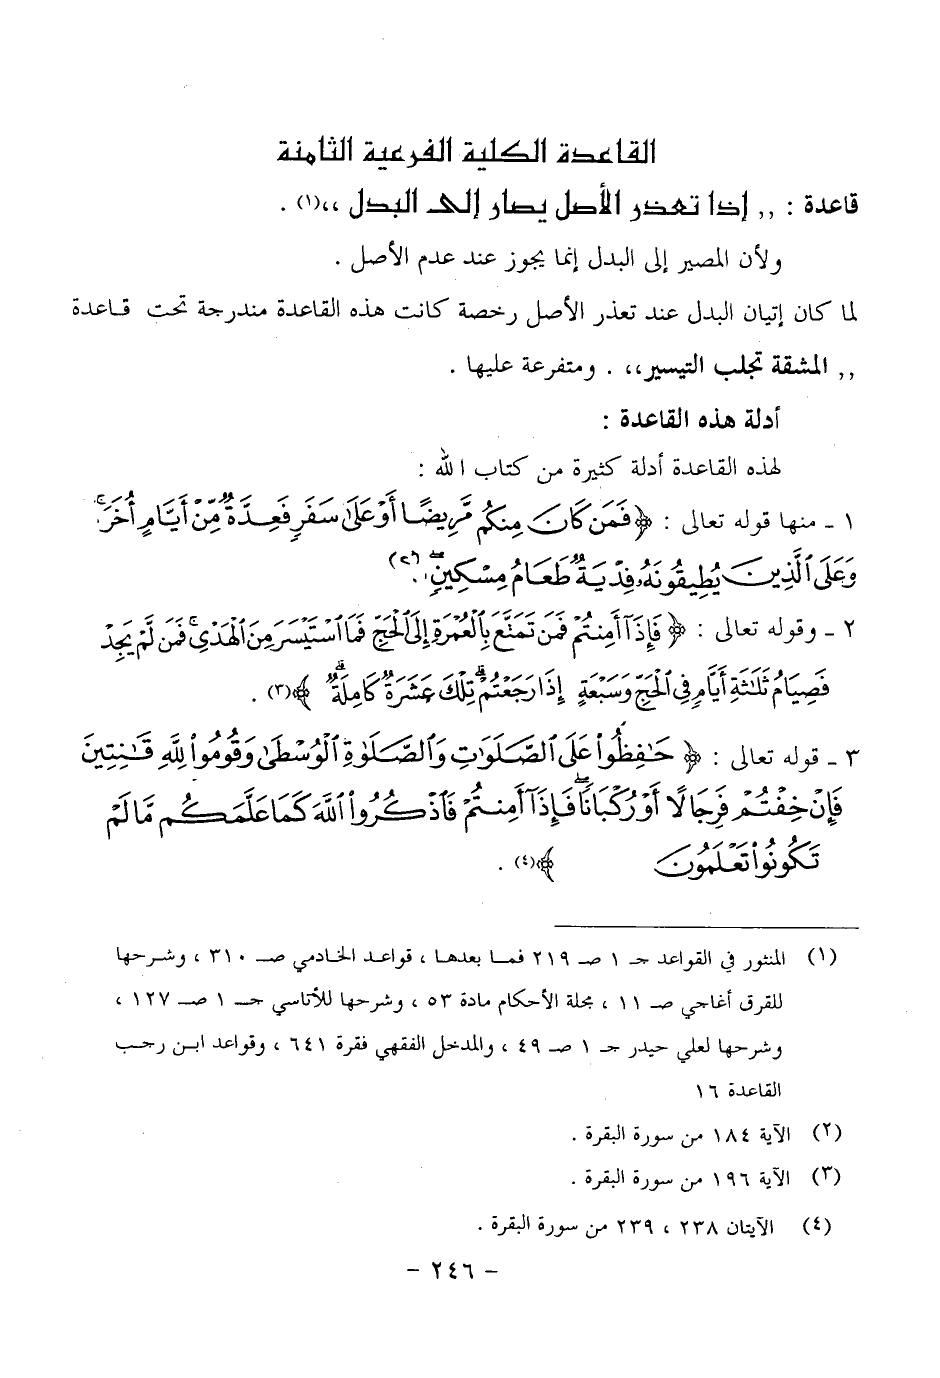 القاعدة الكلية الفرعية الثامنة
قاعدة : ,, إذا تعذر الأصل يصار إلى البدل ،،(١) .
ولأن المصير إلى البدل إنما يجوز عند عدم الأصل .
لما كان إتيان البدل عند تعذر الأصل رخصة كانت هذه القاعدة مندرجة تحت قاعدة
,, المشقة تجلب التيسير،، . ومتفرعة عليها .
أدلة هذه القاعدة :
لهذه القاعدة أدلة كثيرة من كتاب الله :
١ ـ منها قوله تعالى : ﴿ فَمَن كَانَ مِنكُم مَّرِيضًا أَوْ عَلَىٰ سَفَرٍ فَعِدَّةٌ مِّنْ أَيَّامٍ أُخَرَ ۚ
وَعَلَى ٱلَّذِينَ يُطِيقُونَهُۥ فِدْيَةٌ طَعَامُ مِسْكِينٍ ۖ .(٢)
٢ ـ وقوله تعالى : ﴿ فَإِذَآ أَمِنتُمْ فَمَن تَمَتَّعَ بِٱلْعُمْرَةِ إِلَى ٱلْحَجِّ فَمَا ٱسْتَيْسَرَ مِنَ ٱلْهَدْىِ ۚ فَمَن لَّمْ يَجِدْ
فَصِيَامُ ثَلَٰثَةِ أَيَّامٍ فِى ٱلْحَجِّ وَسَبْعَةٍ إِذَا رَجَعْتُمْ ۗ تِلْكَ عَشَرَةٌ كَامِلَةٌ ۗ ﴾(٣) .
٣ ـ قوله تعالى : ﴿ حَٰفِظُوا۟ عَلَى ٱلصَّلَوَٰتِ وَٱلصَّلَوٰةِ ٱلْوُسْطَىٰ وَقُومُوا۟ لِلَّهِ قَٰنِتِينَ
فَإِنْ خِفْتُمْ فَرِجَالًا أَوْ رُكْبَانًا ۖ فَإِذَآ أَمِنتُمْ فَٱذْكُرُوا۟ ٱللَّهَ كَمَا عَلَّمَكُم مَّا لَمْ
تَكُونُوا۟ تَعْلَمُونَ ﴾(٤) .
(١) المنثور في القواعد حـ ١ صـ ٢١٩ فمـا بعدهـا ، قواعـد الخـادمي صـ ٣١٠ ، وشـرحهـا
للقرق أغاجي صـ ١١ ، مجلة الأحكام مادة ٥٣ ، وشرحها للأتاسي حـ ١ صـ ١٢٧ ،
وشرحها لعلي حيدر جـ ١ صـ ٤٩ ، والمدخل الفقهي فقرة ٦٤١ ، وقواعد ابن رجب
القاعدة ١٦
(٢) الآية ١٨٤ من سورة البقرة .
(٣) الآية ١٩٦ من سورة البقرة .
(٤) الآيتان ٢٣٨ ، ٢٣٩ من سورة البقرة .
– ٢٤٦ –